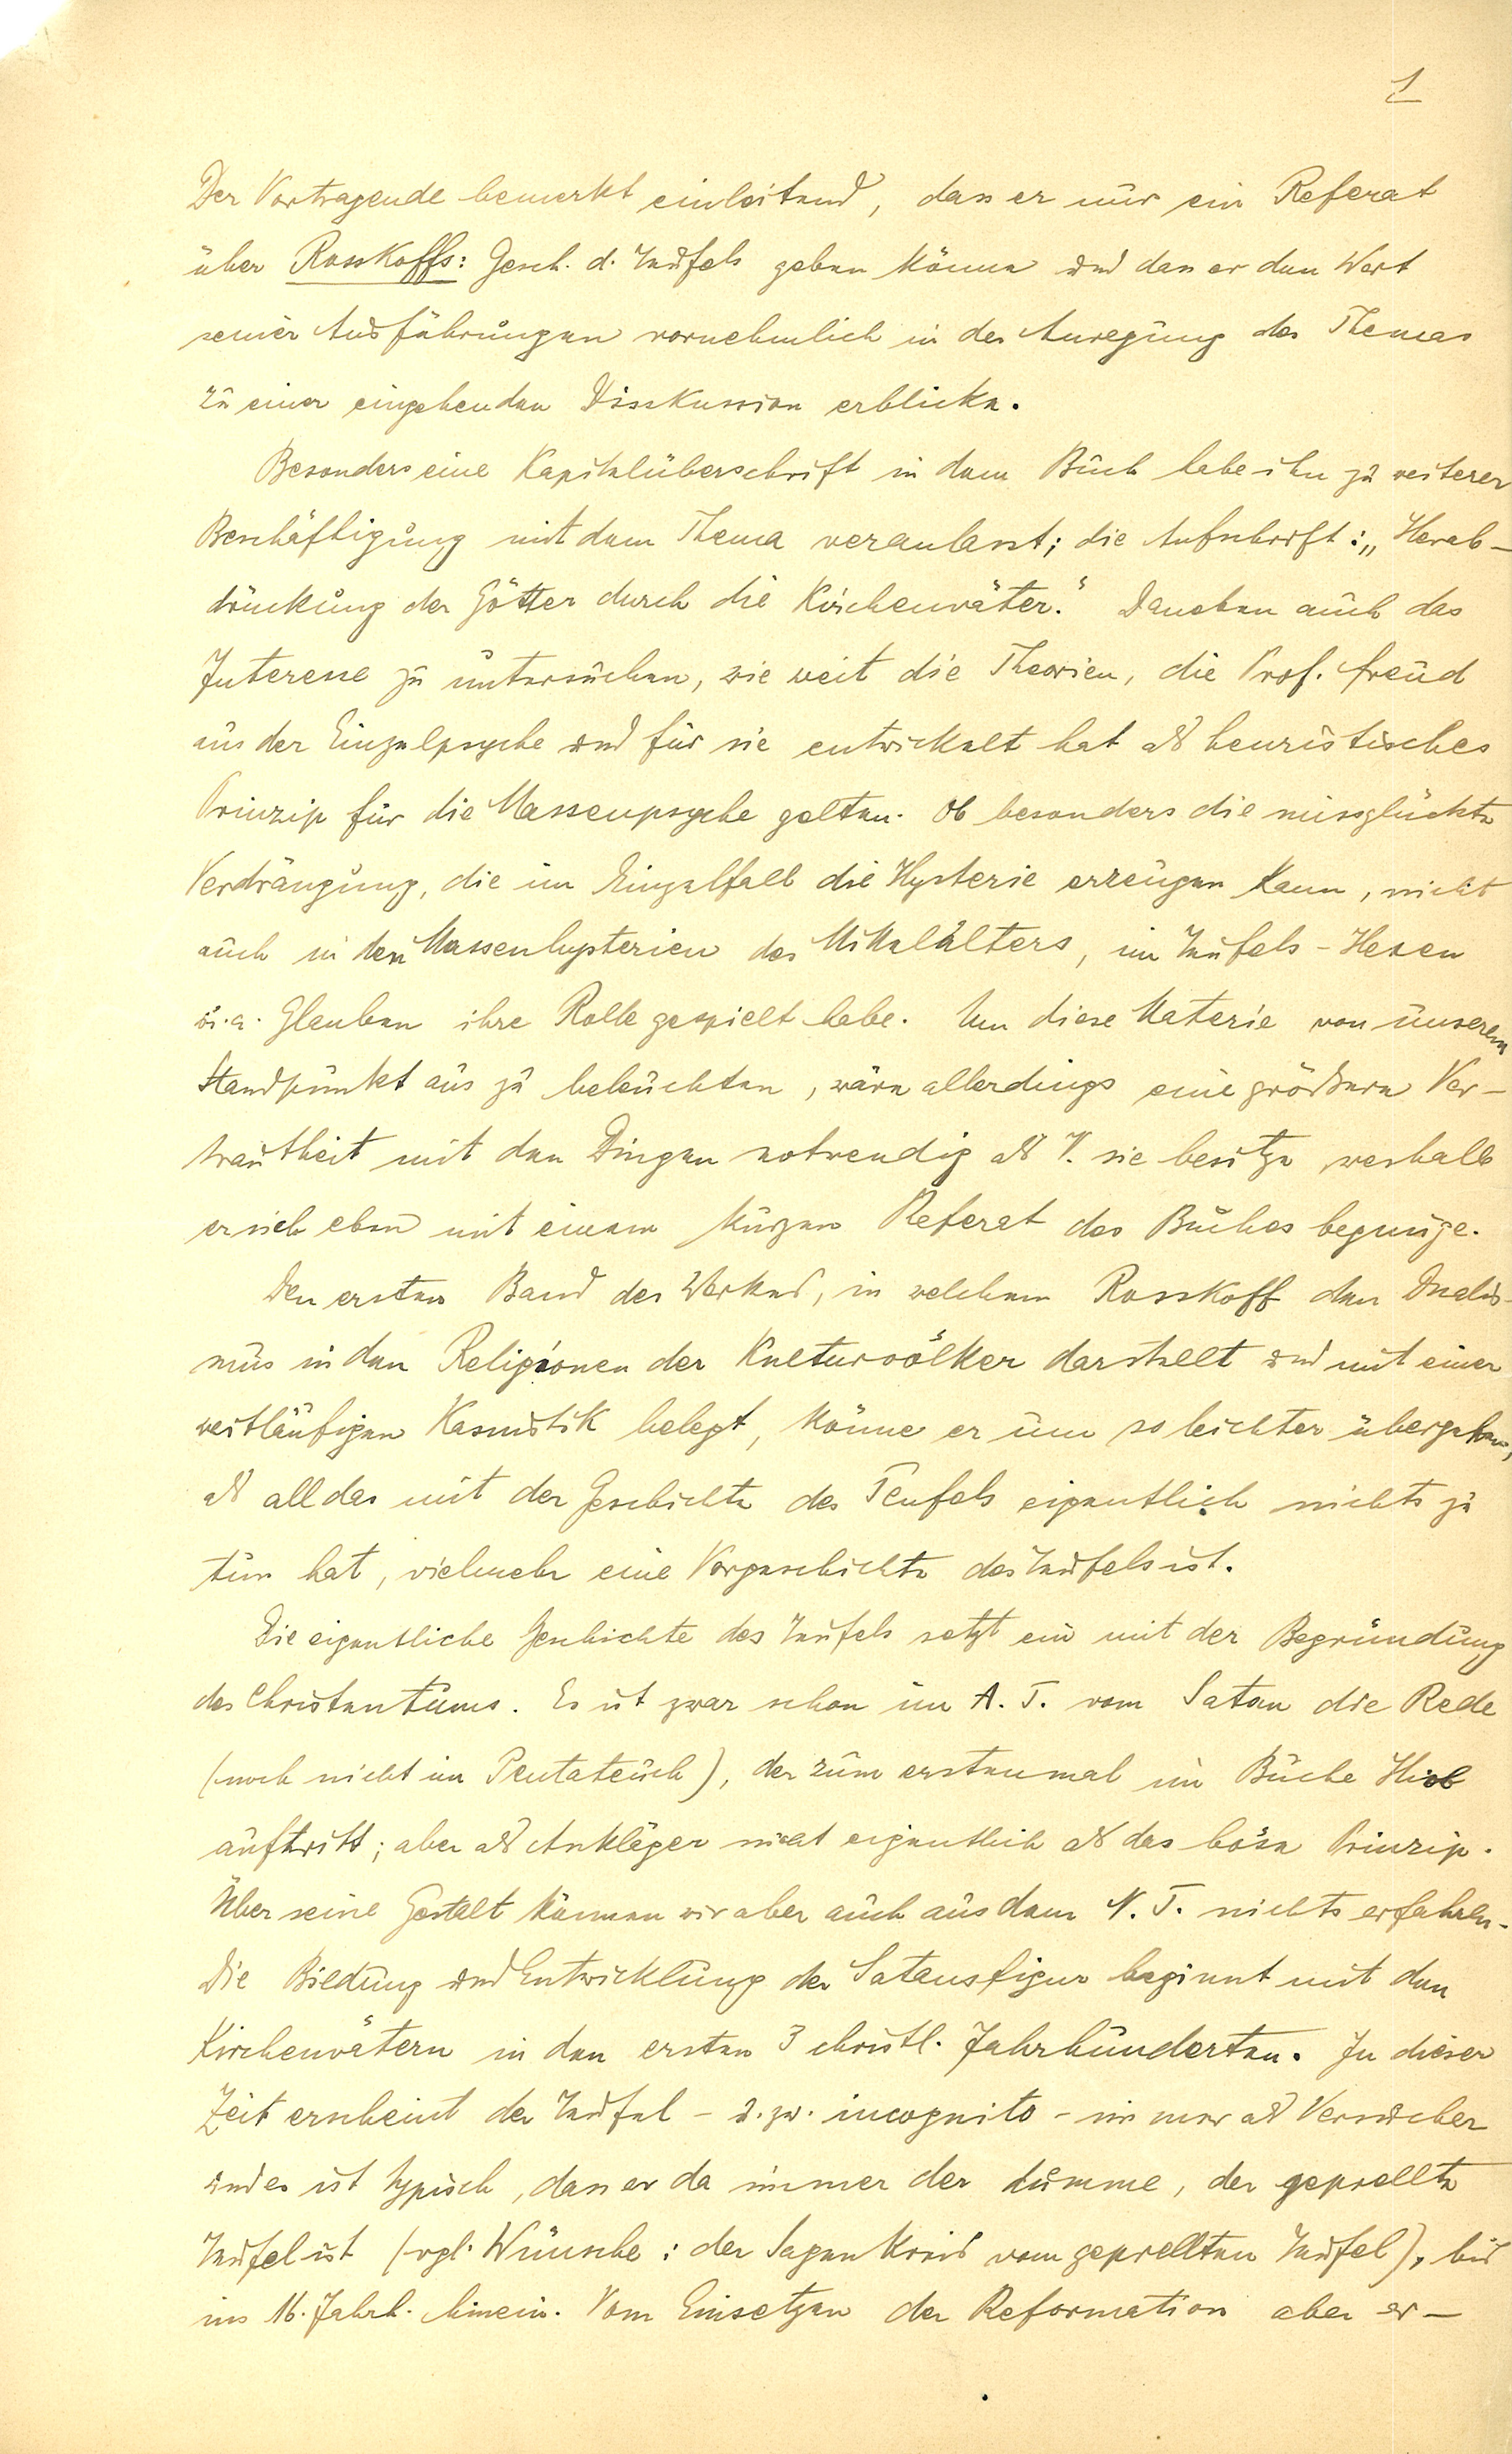 1
Der Vortragende bemerkt einleitend, dass er nur ein Referat
über Rosskoffs: Gesch. d. Teufels geben könne und dass er den Wert
seiner Ausführungen vornehmlich in der Anregung des Themas
zu einer eingehenden Disskussion erblicke.
Besonders eine Kapitelüberschrift in dem Buch habe ihn zu weiterer
Beschäftigung mit dem Thema veranlasst; die Aufschrift: „Herab-
drückung der Götter durch die Kirchenväter." Daneben auch das
Interesse zu untersuchen, wie weit die Theorien, die Prof. Freud
aus der Einzelpsyche und für sie entwickelt hat als heuristisches
Prinzip für die Massenpsyche gelten. Ob besonders die missglückte
Verdrängung, die im Einzelfall die Hysterie erzeugen kann, nicht
auch in den Massenhysterien des Mittelalters, im Teufels-Hexen
u. a. Glauben ihre Rolle gespielt habe. Um diese Materie von unserem
Standpunkt aus zu beleuchten, wäre allerdings eine größere Ver-
trautheit mit den Dingen notwendig als V. sie besitze weshalb
er sich eben mit einem kurzen Referat des Buches begnüge.
Den ersten Band des Werkes, in welchem Rosskoff den Dualis-
mus in den Religionen der Kulturvölker darstellt und mit einer
weitläufigen Kasuistik belegt, könne er um so leichter übergehen,
als all das mit der Geschichte des Teufels eigentlich nichts zu
tun hat, vielmehr eine Vorgeschichte des Teufels ist.
Die eigentliche Geschichte des Teufels setzt ein mit der Begründung
des Christentums. Es ist zwar schon im A. T. vom Satan die Rede
(noch nicht im Pentateuch), der zum erstenmal im Buche Hiob
auftritt; aber als Ankläger nicht eigentlich als das böse Prinzip.
Über seine Gestalt können wir aber auch aus dem N. T. nichts erfahren.
Die Bildung und Entwicklung der Satansfigur beginnt mit den
Kirchenvätern in den ersten 3 christl. Jahrhunderten. In dieser
Zeit erscheint der Teufel - u. zw. incognito - immer als Versucher
und es ist typisch, dass er da immer der dumme, der geprellte
Teufel ist (vgl. Wünsche: der Sagenkreis vom geprellten Teufel), bis
ins 16. Jahrh. hinein. Vom Einsetzen der Reformation aber er-